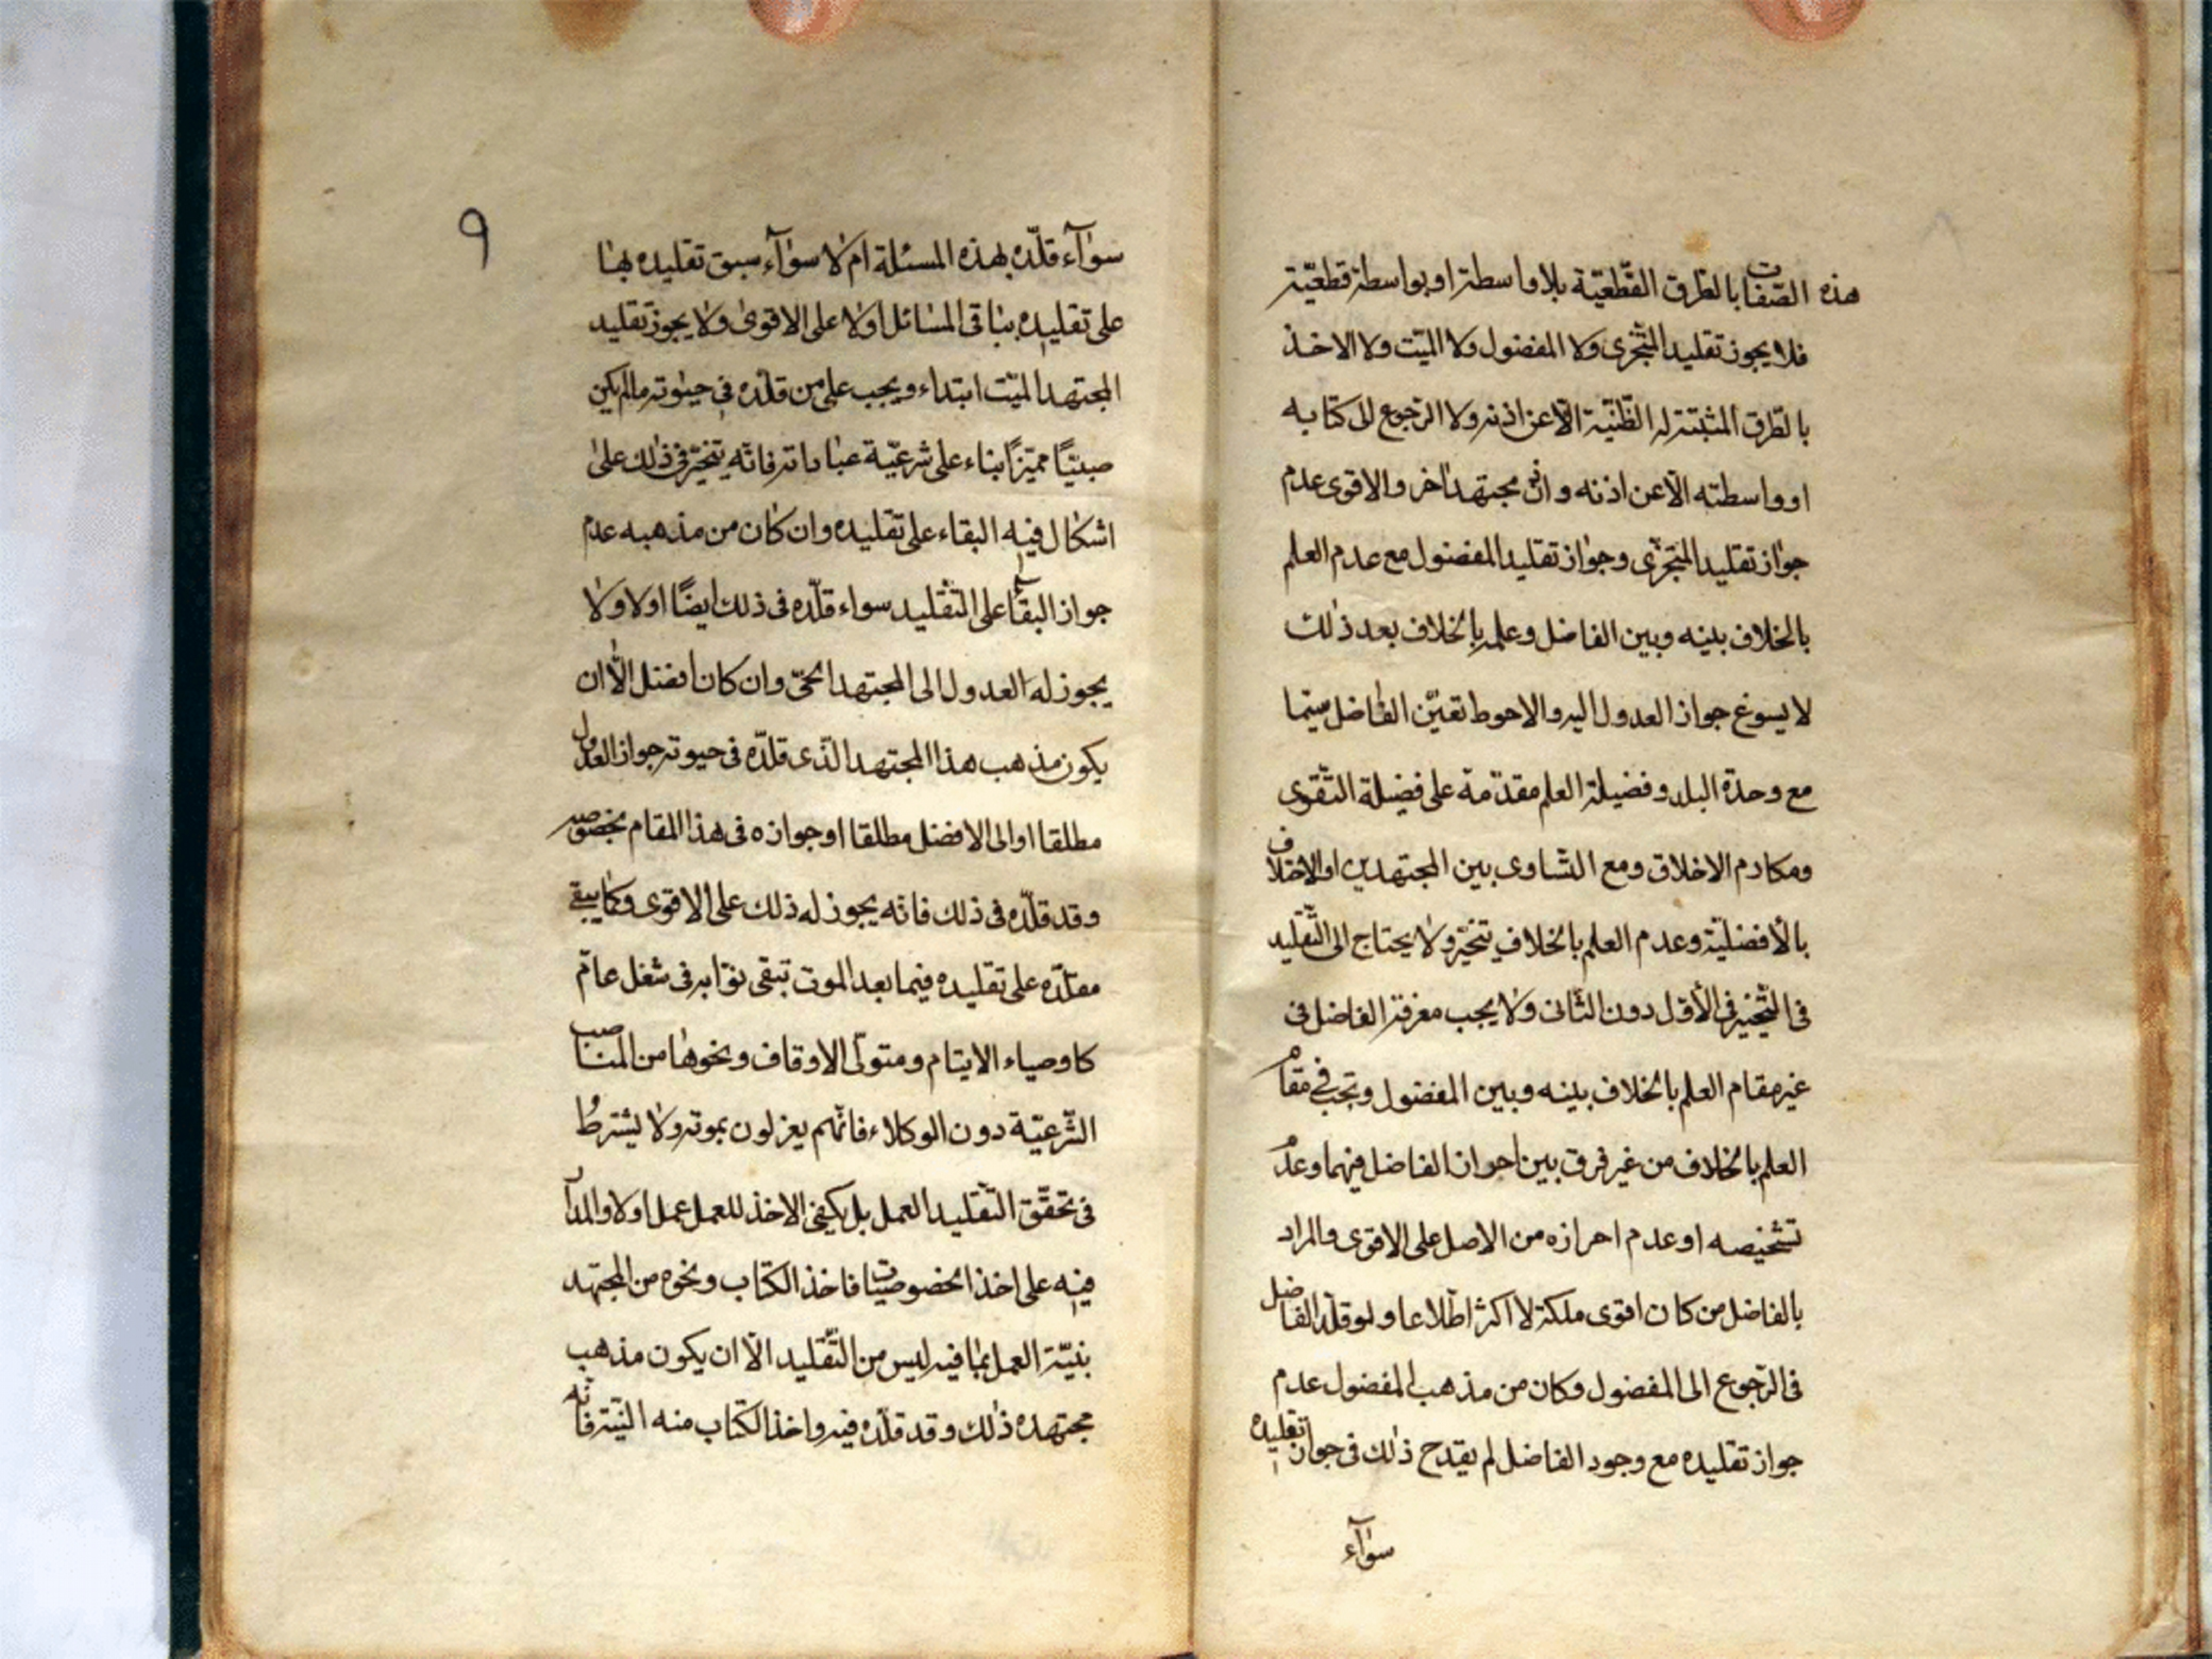 هذه الصّفات بالطّرق القّطعيّة بلا واسطة او بواسطة قطعيّة
فلا يجوز تقليد المتجّرى ولا المفضول ولا الميّت ولا الاخذ
بالطّرق المثبتة له الظّنيّة الّا عن اذنه ولا الرّجوع الى كتابه
او واسطته الّا عن اذنه واذن مجتهد اخر والاقوى عدم
جواز تقليد المتجزّى وجواز تقليد المفضول مع عدم العلم
بالخلاف بينه وبين الفاضل وعلمه بالخلاف بعد ذلك
لا يسوغ جواز العدول اليه والاحوط تعيّن الفاضل سيّما
مع وحدة البلد وفضيلة العلم مقدّمة على فضيلة التّقوى
ومكارم الاخلاق ومع التّساوى بين المجتهدين او الاختلاف
بالأفضليّة وعدم العلم بالخلاف يتخيّر ولا يحتاج الى التّقليد
فى التّخيير فى الأوّل دون الثّانى ولا يجب معرفة الفاضل فى
غير مقام العلم بالخلاف بينه وبين المفضول وتجب فى مقام
العلم بالخلاف من غير فرق بين احوال الفاضل فيهما وعدم
تشخيصه او عدم احرازه من الاصل على الاقوى والمراد
بالفاضل من كان اقوى ملكة لا اكثر اطّلاعا ولو قلّد الفاضل
فى الرّجوع الى المفضول وكان من مذهب المفضول عدم
جواز تقليده مع وجود الفاضل لم يقدح ذلك فى جواز تقليده
سوآء
٩
سوآء قلّده بهذه المسئلة ام لا سوآء سبق تقليده بها
على تقليده بباقى المسائل اولا على الاقوى ولا يجوز تقليد
المجتهد الميّت ابتداء ويجب على من قلّده فى حيوته مالم يكن
صبيّا مميّزا بناء على شرعيّة عباداته فانّه يتخيّر فى ذلك على
اشكال فيه البقاء على تقليده وان كان من مذهبه عدم
جواز البقآء على التّقليد سواء قلّده فى ذلك ايضا اولا ولا
يجوز له العدول الى المجتهد الحىّ وان كان افضل الّا ان
يكون مذهب هذا المجتهد الّذى قلّده فى حيوته جواز العدول
مطلقا او الى الافضل مطلقا او جوازه فى هذا المقام بخصوصه
وقد قلّده فى ذلك فانّه يجوز له ذلك على الاقوى وكما يبقى
مقلّده على تقليده فيما بعد الموت تبقى نوّابه فى شغل عامّ
كاوصياء الايتام ومتولّى الاوقاف ونحوها من المناصب
الشّرعيّة دون الوكلاء فانّهم يعزلون بموته ولا يشترط
فى تحقّق التّقليد العمل بل يكفى الاخذ للعمل عمل اولا والمدار
فيه على اخذ الخصوصيّات فاخذ الكتاب ونحوه من المجتهد
بنيّة العمل بما فيه ليس من التّقليد الّا ان يكون مذهب
مجتهده ذلك وقد قلّده فيه واخذ الكتاب منه النيّة فانّه